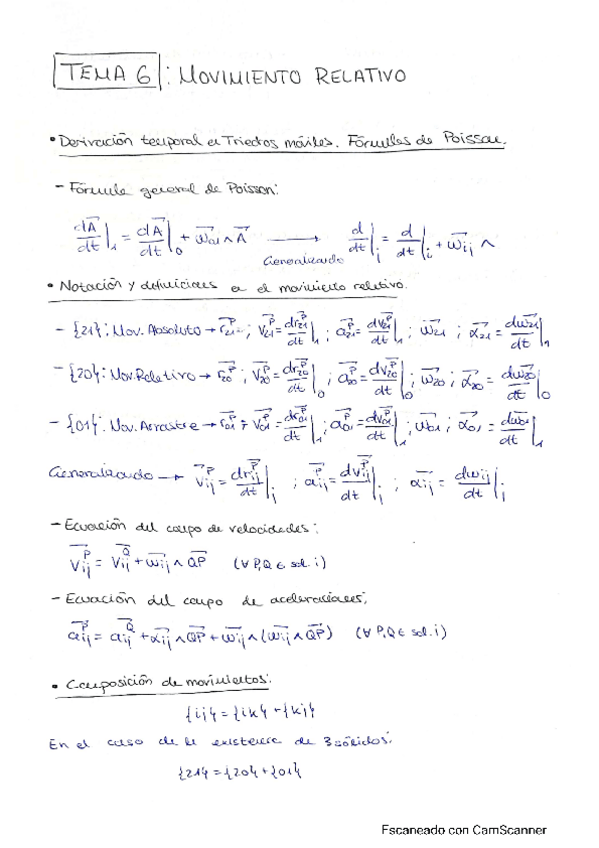 TEMA 6 : MOVIMIENTO RELATIVO
• Derivación temporal en Triedros móviles. Fórmulas de Poisson.
- Fórmula general de Poisson:
dA⃗/dt|₁ = dA⃗/dt|₀ + ω⃗₀₁ ∧ A⃗ ⟶ Generalizado d/dt|ⱼ = d/dt|ᵢ + ω⃗ᵢⱼ ∧
• Notación y definiciones en el movimiento relativo.
- {21}: Mov. Absoluto → r⃗₂₁ᴾ ; v⃗₂₁ᴾ = dr⃗₂₁ᴾ/dt|₁ ; a⃗₂₁ᴾ = dv⃗₂₁ᴾ/dt|₁ ; ω⃗₂₁ ; α⃗₂₁ = dω⃗₂₁/dt|₁
- {20}: Mov. Relativo → r⃗₂₀ᴾ ; v⃗₂₀ᴾ = dr⃗₂₀ᴾ/dt|₀ ; a⃗₂₀ᴾ = dv⃗₂₀ᴾ/dt|₀ ; ω⃗₂₀ ; α⃗₂₀ = dω⃗₂₀/dt|₀
- {01}: Mov. Arrastre → r⃗₀₁ᴾ ; v⃗₀₁ᴾ = dr⃗₀₁ᴾ/dt|₁ ; a⃗₀₁ᴾ = dv⃗₀₁ᴾ/dt|₁ ; ω⃗₀₁ ; α⃗₀₁ = dω⃗₀₁/dt|₁
Generalizado → v⃗ᵢⱼᴾ = dr⃗ᵢⱼᴾ/dt|ⱼ ; a⃗ᵢⱼᴾ = dv⃗ᵢⱼᴾ/dt|ⱼ ; α⃗ᵢⱼ = dω⃗ᵢⱼ/dt|ⱼ
- Ecuación del campo de velocidades:
v⃗ᵢⱼᴾ = v⃗ᵢⱼ^Q + ω⃗ᵢⱼ ∧ QP⃗ (∀ P,Q ∈ sol. i)
- Ecuación del campo de aceleraciones:
a⃗ᵢⱼᴾ = a⃗ᵢⱼ^Q + α⃗ᵢⱼ ∧ QP⃗ + ω⃗ᵢⱼ ∧ (ω⃗ᵢⱼ ∧ QP⃗) (∀ P,Q ∈ sol. i)
• Composición de movimientos:
{ij} = {ik} + {kj}
En el caso de la existencia de 3 sólidos:
{21} = {20} + {01}
Escaneado con CamScanner